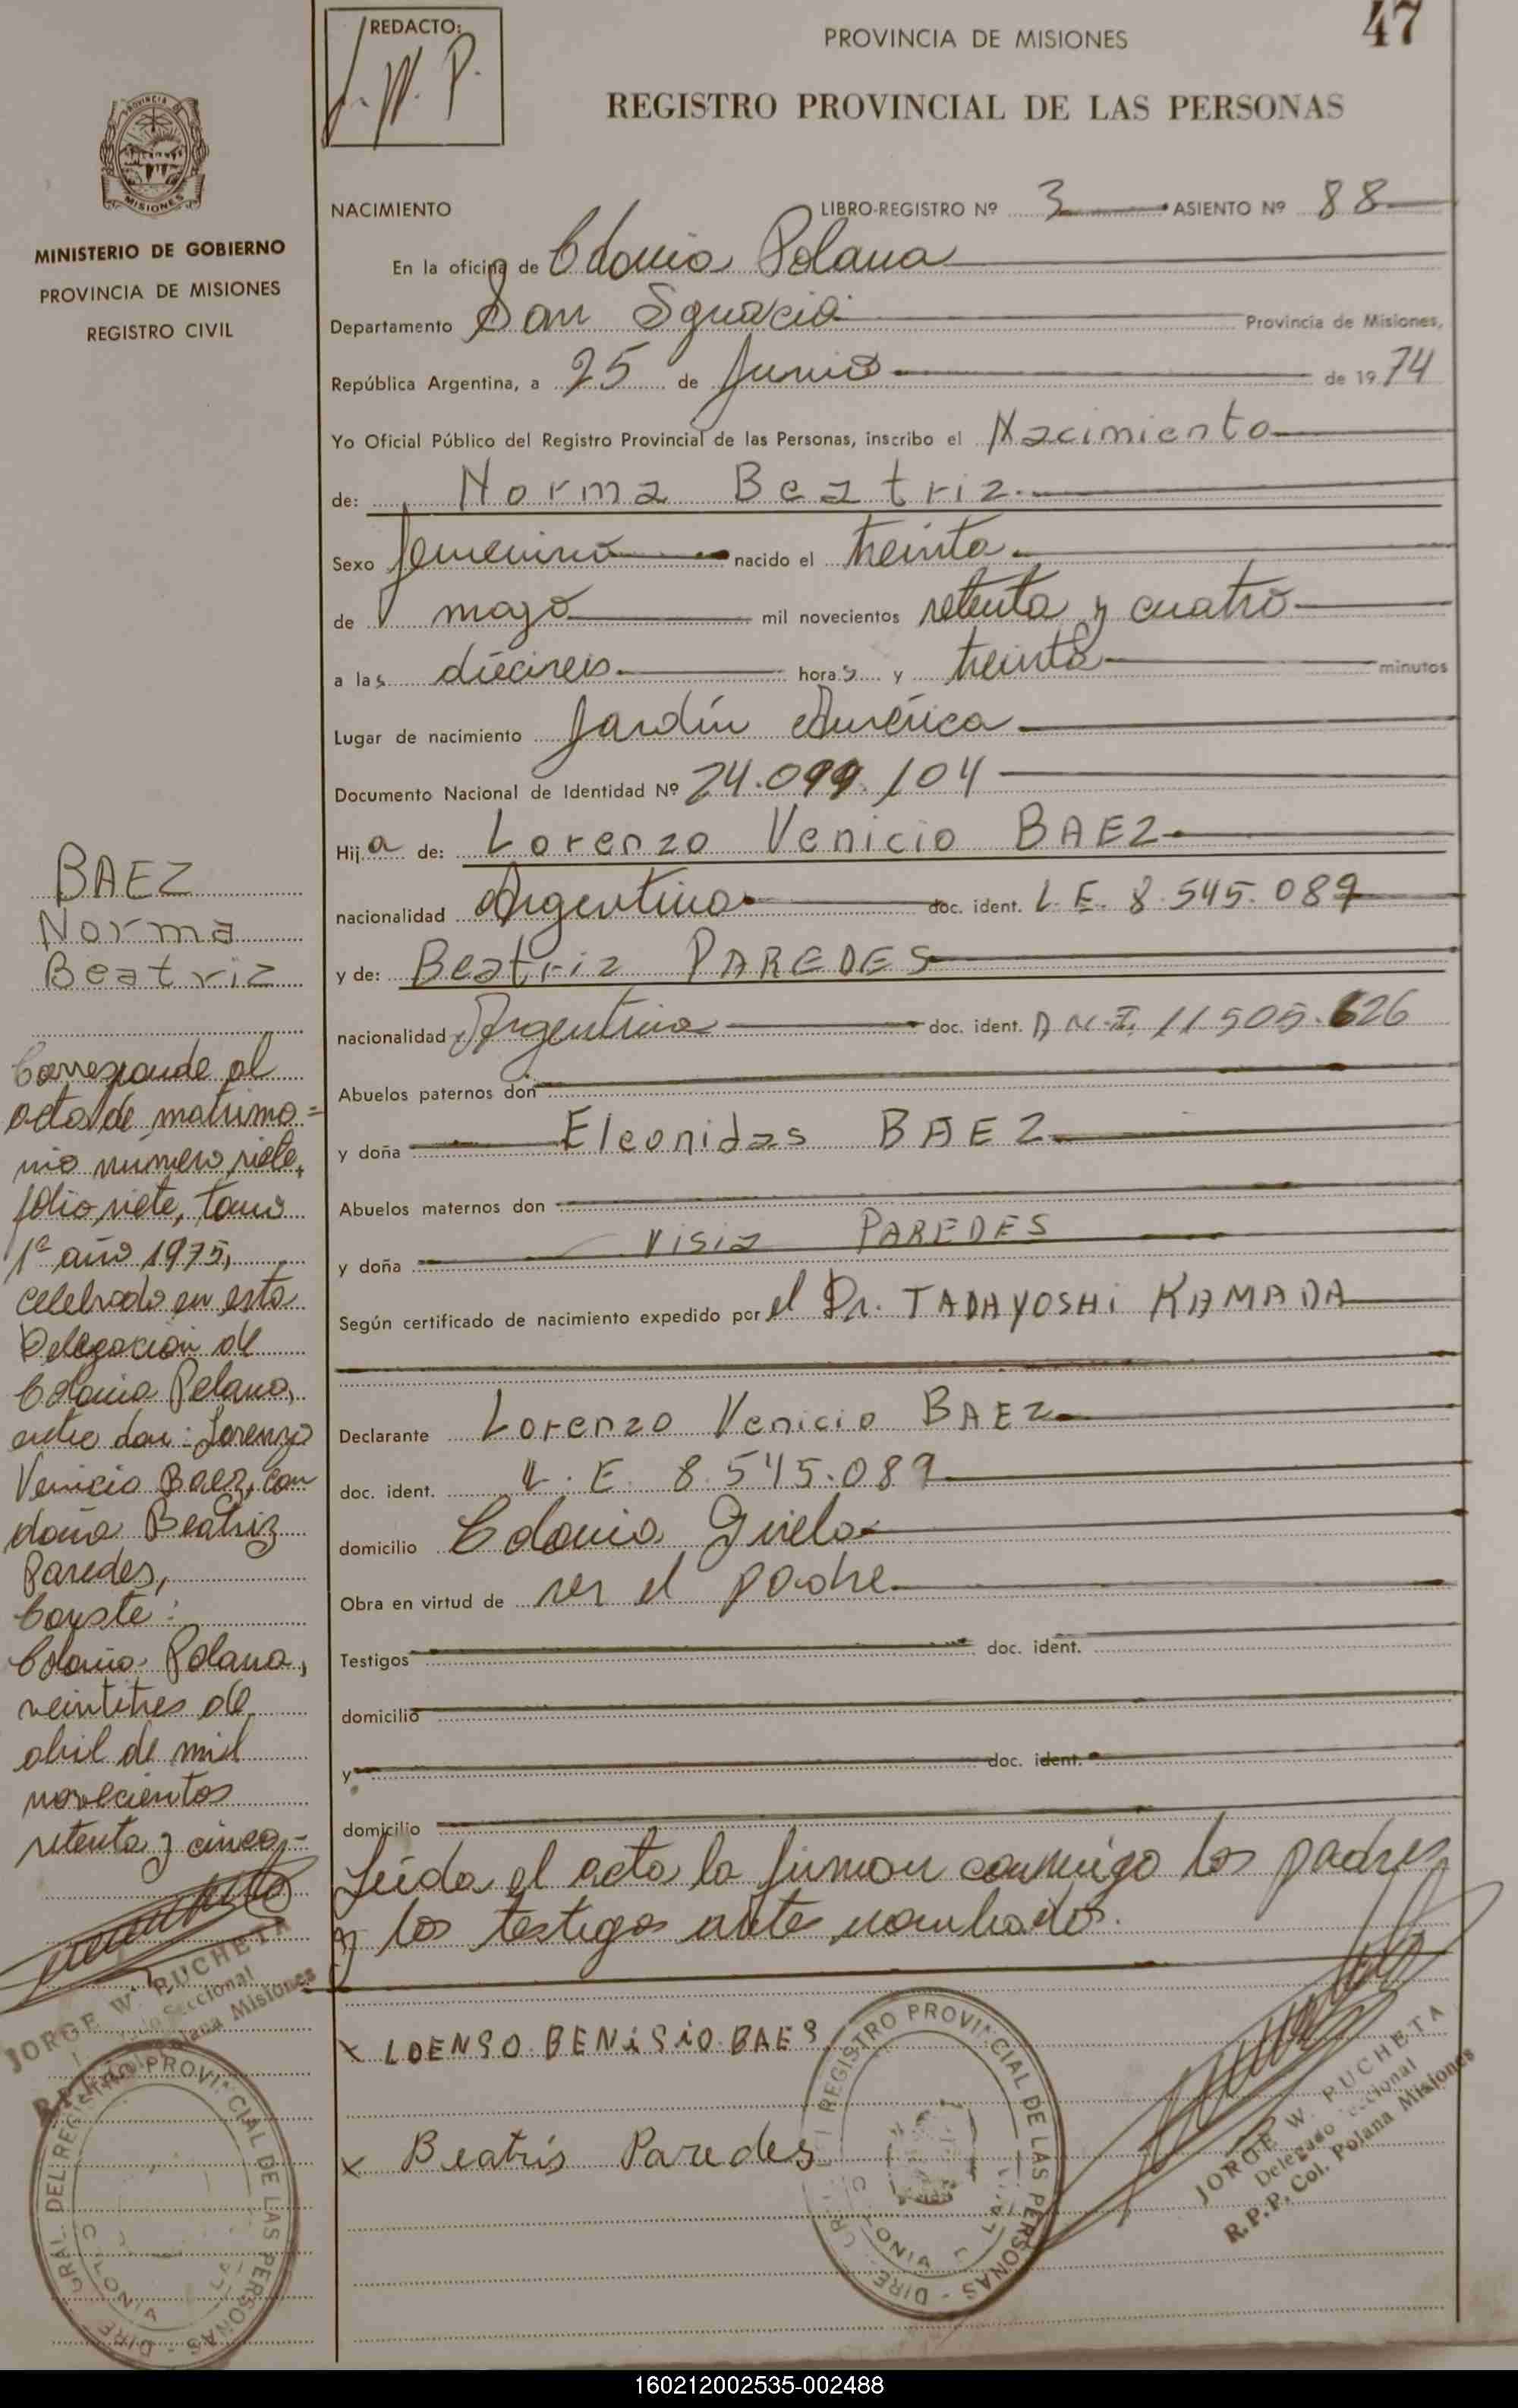 REDACTO:
J.W.P.
PROVINCIA DE MISIONES
47
REGISTRO PROVINCIAL DE LAS PERSONAS
PROVINCIA DE
MISIONES
MINISTERIO DE GOBIERNO
PROVINCIA DE MISIONES
REGISTRO CIVIL
BAEZ
Norma
Beatriz
Corresponde al
acta de matrimo=
nio numero siete,
folio siete, tomo
1º año 1975,
celebrado en esta
Delegación de
Colonia Polana,
entre don: Lorenzo
Venicio Baez, con
doña Beatriz
Paredes,
Conste:
Colonia Polana,
veintitres de
abril de mil
novecientos
setenta y cinco,-
JORGE W. PUCHETA
Seccional
Polana Misiones
DIRE GRAL. DEL REGISTRO PROVINCIAL DE LAS PERSONAS
COLONIA
NACIMIENTO LIBRO-REGISTRO Nº 3 ASIENTO Nº 88
En la oficina de Colonia Polana
Departamento San Ignacio Provincia de Misiones,
República Argentina, a 25 de Junio de 1974
Yo Oficial Público del Registro Provincial de las Personas, inscribo el Nacimiento
de: Norma Beatriz
Sexo femenino nacido el treinta
de mayo mil novecientos setenta y cuatro
a las dieciseis horas y treinta minutos
Lugar de nacimiento Jardín América
Documento Nacional de Identidad Nº 24.099.104
Hija de: Lorenzo Venicio BAEZ
nacionalidad Argentino doc. ident. L.E. 8.545.089
y de: Beatriz PAREDES
nacionalidad Argentina doc. ident. D.N.I. 11.505.626
Abuelos paternos don
y doña Eleonidas BAEZ
Abuelos maternos don
y doña Visia PAREDES
Según certificado de nacimiento expedido por el Dr. TADAYOSHI KAMADA
Declarante Lorenzo Venicio BAEZ
doc. ident. L.E. 8.545.089
domicilio Colonia
Obra en virtud de ser el padre
Testigos doc. ident.
domicilio
y doc. ident.
domicilio
Leída el acta la firman conmigo los padres
y los testigos ante nombrados.
x LOENSO BENiSiO BAES
x Beatris Paredes
DIRE GRAL. DEL REGISTRO PROVINCIAL DE LAS PERSONAS
COLONIA
JORGE W. PUCHETA
Delegado Seccional
R.P.P. Col. Polana Misiones
160212002535-002488